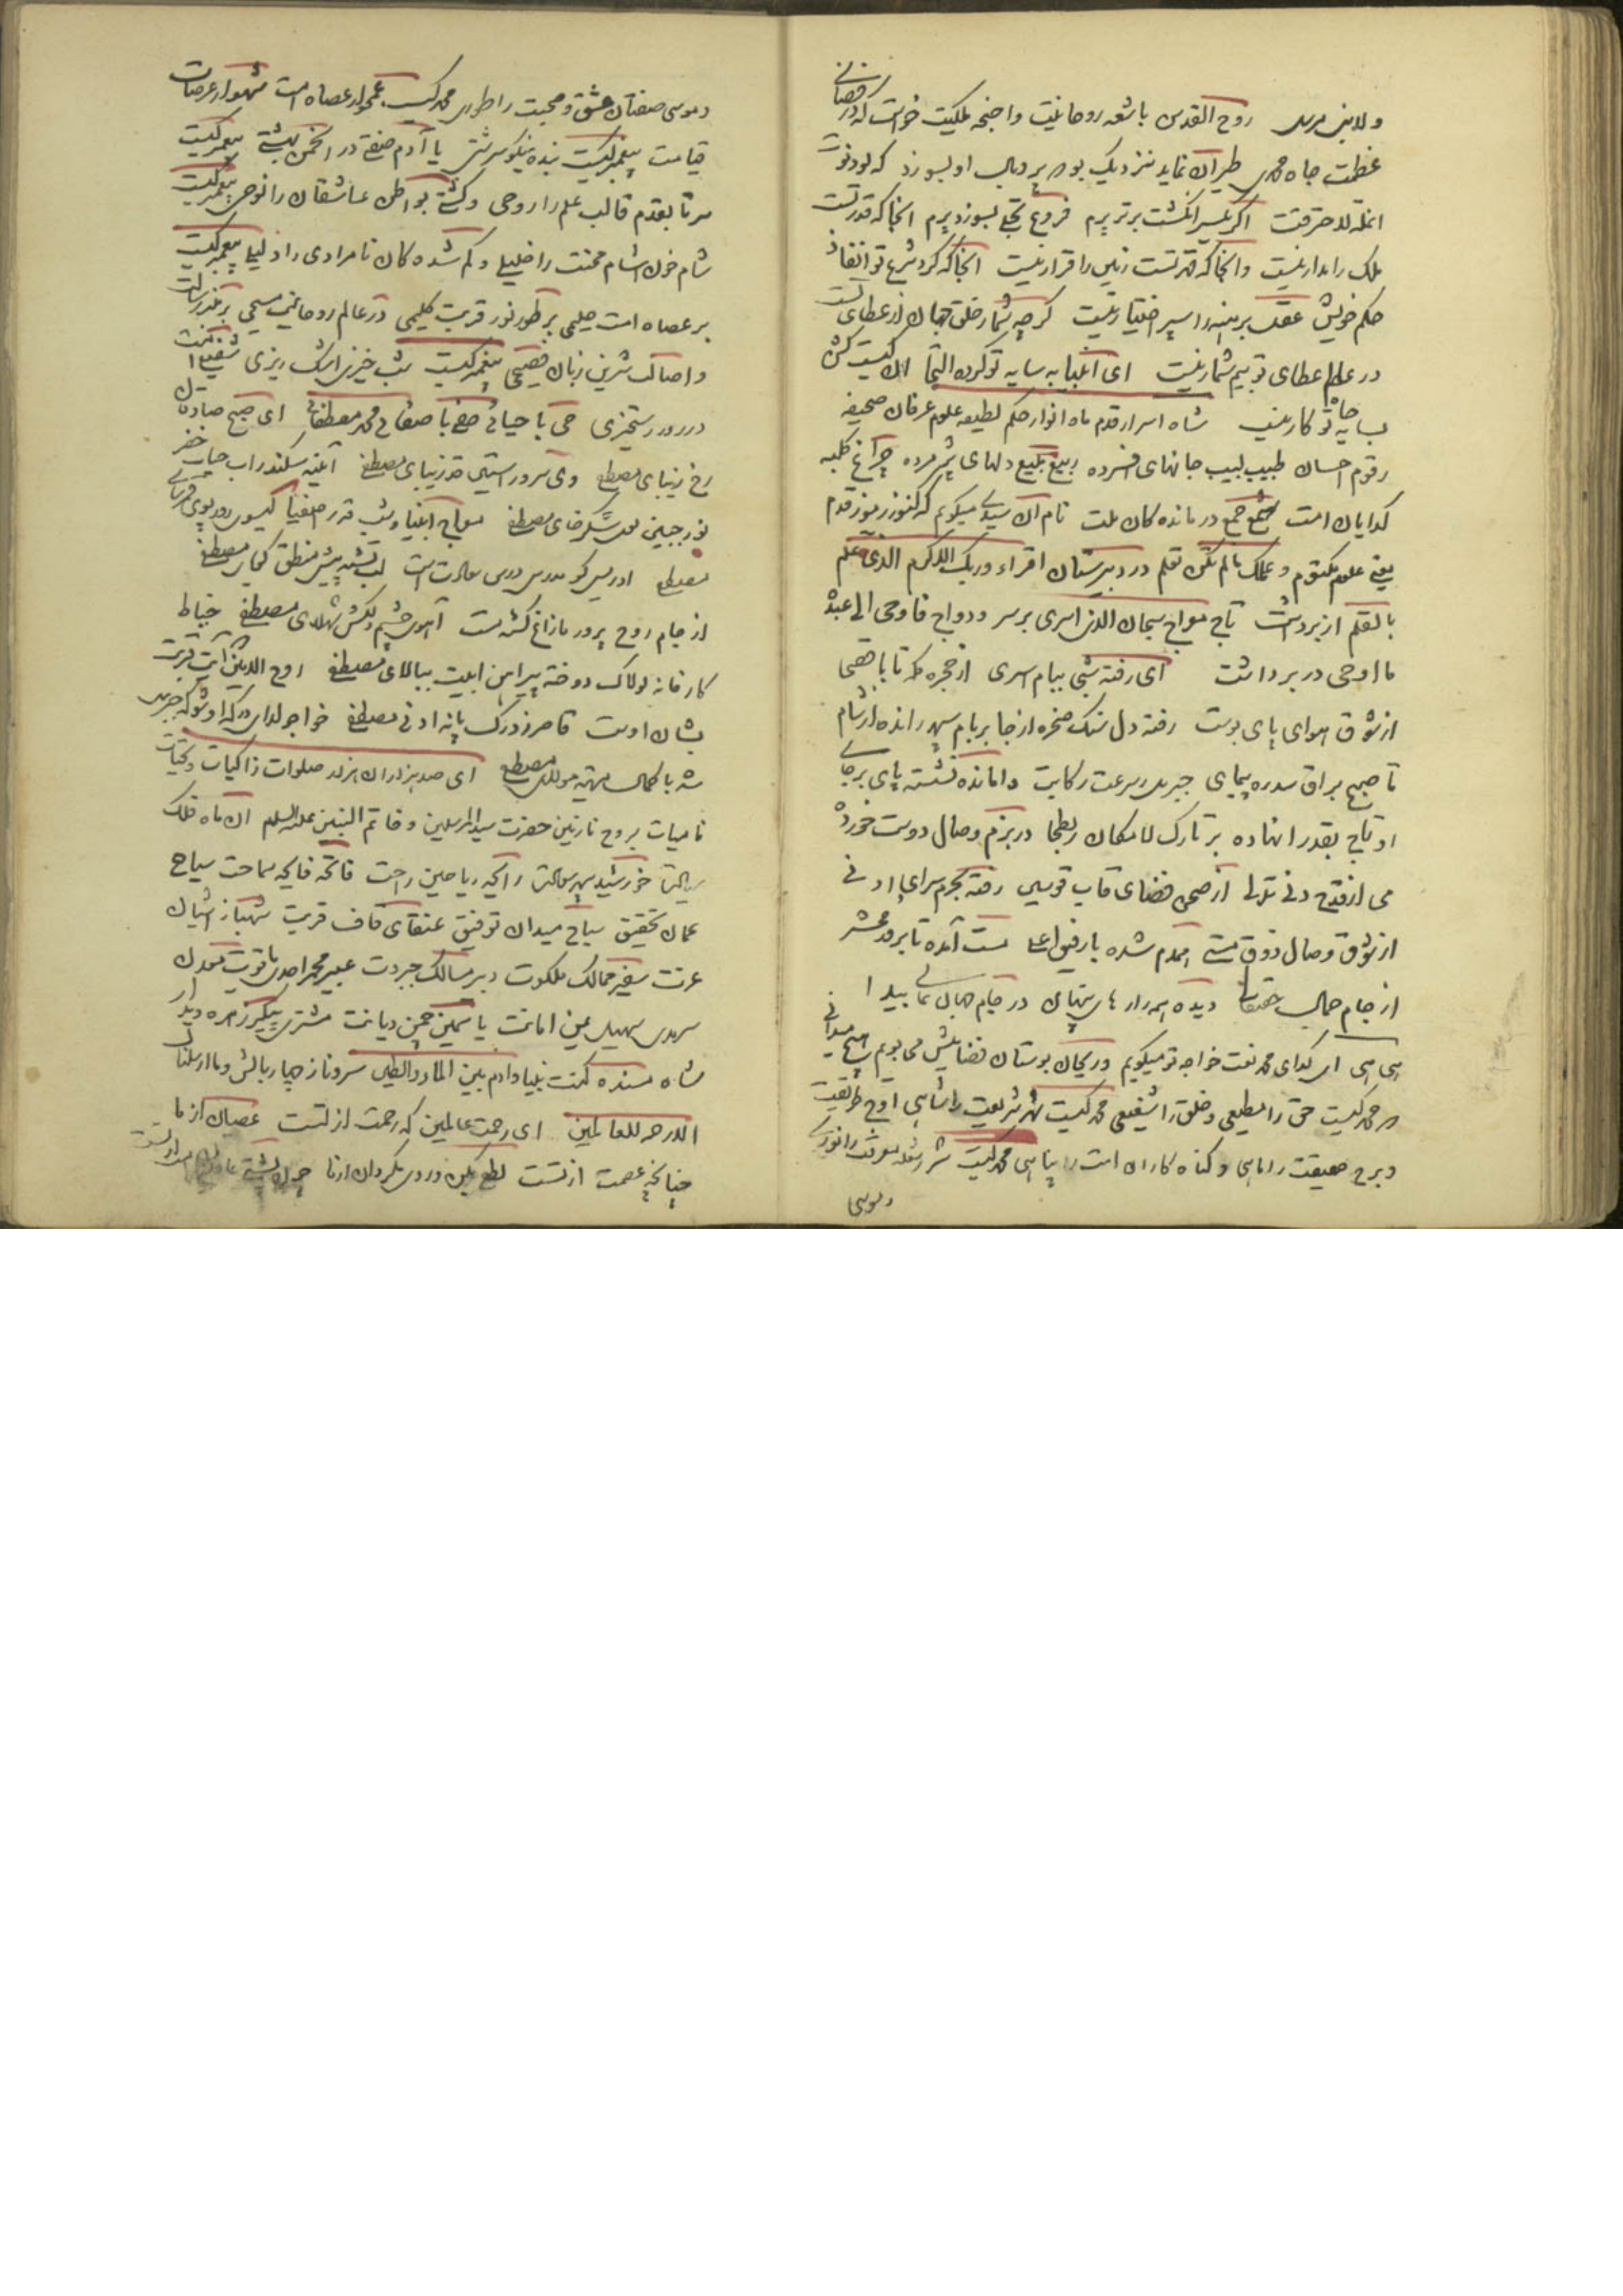 ولا بنی مرسل روح القدس باشعه روحانیت واجنحه ملکیت خواست که در فضای
عظمت جاه محمدی طیران نماید نزدیک بود که پر وبال او بسوزد که لو دنوت
انملة لاحترقت اگر یکسر انگشت برتر پرم فروغ تجلی بسوزد پرم آنجا که قدرتست
ملک را مدار نیست وانجا که قدرتست زمین را قرار نیست آنجا که کرد شرع تو انفاذ
حکم خویش عقل برهنه را سپر اختیار نیست کرچه شمار خلق جهان از عطای تست
در عالم عطای تو بیم شمار نیست ای انبیا به سایه تو کرده التجا آن کیست کش
بسایه جاه تو کار نیست شاه اسرار قدم ماه انوار حکم لطیفه علوم عرفان صحیفه
رقوم احسان طبیب لبیب جانهای افسرده ربیع بدیع دلهای پژمرده چراغ کلبه
کدایان امت شمع جمع درماندکان ملت نام آن سیدی میکویم که کنوز رموز قدم
یعنی علوم مکتوم وعلمک مالم تکن تعلم در دبیرستان اقراء وربک الاکرم الذی علم
بالقلم از بر داشت تاج معراج سبحان الذی اسری بر سر ودواج فاوحی الی عبده
ما اوحی در بر داشت ای رفته شبی ببام اسری از حجره مکه تا باقصی
از شوق هوای پای بوست رفته دل سنک صخره از جا بر بام سپهر رانده از شام
تا صبح براق سدره پیمای جبریل ز سرعت رکابت وامانده نشسته پای بر جای
او تاج بقدر انهاده بر تارک لامکان ز بطحا در بزم وصال دوست خورده
می از قدح دنی تدلی از صحن فضای قاب قوسین رفته بحرم سرای او ادنی
از شوق وصال ذوق مستی همدم شده با رفیق اعلی مست آمده تا بروز محشر
از جام جمال حقتعالی دیده همه رازهای پنهان در جام جهان نمای پیدا
هی هی ای کدای محمد نعت خواجه تو میکویم وریحان بوستان فضایلش می بویم هیچ میدانی
که محمد کیست حق را مطیعی وخلق را شفیعی محمد کیست شهر شریعت را شاهی اوج طریقت
وبرج حقیقت را ماهی وکناه کاران امت را پناهی محمد کیست شرر شعله معرفت را نوری
وموسی
وموسی صفتان عشق ومحبت را طوری محمد کیست غمخوار عصاه امت شهسوار عرصات
قیامت پیغمبر کیست بنده نیکو سرشتی یا آدم صفتی در انجمن بهشتی پیغمبر کیست
سر تا بقدم قالب علم را روحی وکشتی بواطن عاشقان را نوحی پیغمبر کیست
شام خون آشام محنت را خلیلی وکم شده کان نامرادی را دلیلی پیغمبر کیست
بر عصاه امت حلیمی بر طور نور قربت کلیمی در عالم روحانیت مسیحی بر منبر رسالت
واصالت شیرین زبان فصیحی پیغمبر کیست شب خیزی اشک ریزی شفیع امت
در روز رستخیزی حی با حیائی صفی با صفائی محمد مصطفائی ای صبح صادقان
رخ زیبای مصطفی وی سرو راستین قد زیبای مصطفی آئینه سکندر آب حیات خضر
نور جبین لعل شکر خای مصطفی معراج انبیا وشب قدر اصفیا کیسوی روز پوی قمر سای
مصطفی ادریس کو مدرس درس سعادت است لب تشنه پیش منطق کویای مصطفی
از جام روح پرور مازاغ کشته مست آهوی چشم دلکش شهلای مصطفی خیاط
کارخانه لولاک دوخته پیراهن ابیت ببالای مصطفی روح الامین که آیت قربت
بشان اوست قاصر ز درک پایه ادنی مصطفی خواجو کدای درکه او شو که جبرئیل
شد با کمال مرتبه مولای مصطفی ای صد هزاران هزار صلوات زاکیات وتحیات
نامیات بروح نازنین حضرت سید المرسلین وخاتم النبیین علیه السلام آن ماه فلک
رسالت خورشید سپهر سعادت رایحه ریاحین راحت فاتحه فایحه سماحت سیاح
عمان تحقیق سیاح میدان توفیق عنقای قاف قربت شهباز آشیان
عزت سفیر ممالک ملکوت دبیر مسالک جبروت عبیر مجمر احدی یاقوت معدن
سرمدی سهیل یمن امانت یاسمین چمن دیانت مشتری پیکر زهره دیدار
شاه مسند کنت نبیا وآدم بین الماء والطین سرو ناز چهار بالش وما ارسلناک
الا رحمة للعالمین ای رحمت عالمین که رحمت از تست عصیان از ما
چنانچه عصمت از تست لطفی بکن وروی مکردان از ما چون پشتی